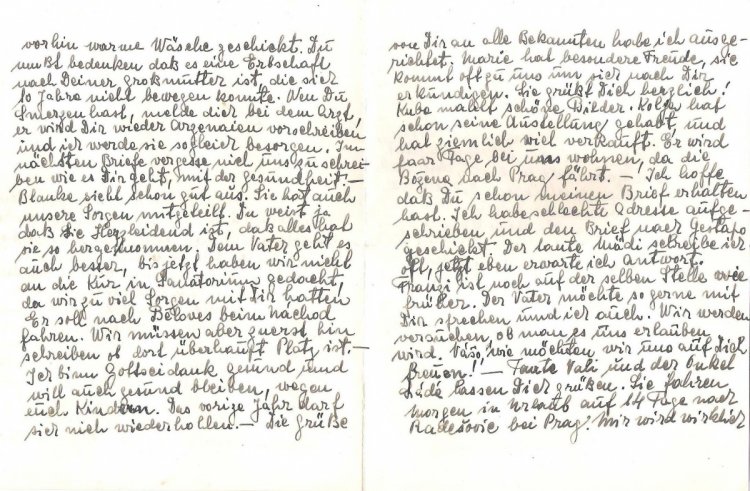 vorhin warme Wäsche geschickt. Du
mußt bedenken daß es eine Erbschaft
nach Deiner Großmutter ist, die sich
10 Jahre nicht bewegen konnte. Wen Du
Smerzen hast, melde dich bei dem Arzt,
er wird Dir wieder Arzenaien vorschreiben
und ich werde sie sogleich besorgen. Im
nächsten Briefe vergesse nich uns zu schrei-
ben wie es Dir geht, mit der gesundheit? -
Blanke sieht schon gut aus. Sie hat auch
unsere Sorgen mitgeteilt. Du weist ja
daß sie Herzleidend ist, daß alles hat
sie so hergenommen. Dem Vater geht es
auch besser, bis jetzt haben wir nicht
an die Kur in Sanatorium gedacht,
da wir zu viel Sorgen mit Dir hatten
Er soll nach Běloves beim Nachod
fahren. Wir müssen aber zuerst hin
schreiben ob dort überhauft Platz ist. -
Ich bin Gottseidank gesund und
will auch gesund bleiben, wegen
euch Kindern. Das vorige Jahr darf
sich nich wiederhollen. - Die Grüße
von Dir an alle Bekannten habe ich ausge-
richtet. Marie hat besondere Freude, sie
kommt oft zu uns um sich nach Dir
erkundigen. Sie grüßt Dich herzlich!
Kuba mahlt schöne Bilder. Kolja hat
schon seine Austellung gehabt, und
hat ziemlich viel verkauft. Er wird
paar Tage bei uns wohnen, da die
Božena nach Prag fährt. - Ich hoffe
daß Du schon meinen Brief erhalten
hast. Ich habe schlechte Adresse aufge-
schrieben und den Brief nach Gestapo
geschickt. Der tante Mädi schreibe ich
oft, jetzt eben erwarte ich Antwort.
Franzi ist noch auf der selben Stelle wie
früher. Der Vater möchte so gerne mit
Dir sprechen und ich auch. Wir werden
versuchen, ob man es uns erlauben
wird. Vašo, wie möchten wir uns auf Dich
freuen!! - Tante Vali und der Onkel
Dědě lassen Dich grüßen. Sie fahren
morgen in Urlaub auf 14 Tage nach
Radešovic bei Prag! Mir wird wirklich